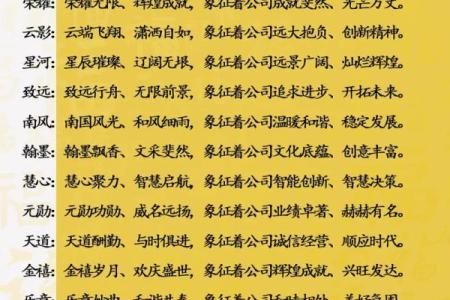 荣耀: 荣耀无限、辉煌成就，象征着公司成就斐然、光芒万丈。
云影: 云端飞翔、潇洒自如，象征着公司远大抱负、创新精神。
星河: 星辰璀璨、辽阔无垠，象征着公司远景广阔、灿烂辉煌。
致远: 致远行舟、无限前景，象征着公司追求进步、开拓未来。
南风: 南国风光、和风细雨，象征着公司温暖和谐、稳定发展。
翰墨: 翰墨飘香、文采斐然，象征着公司文化底蕴、创意丰富。
慧心: 慧心聚力、智慧启航，象征着公司智能创新、智慧决策。
元勋: 元勋功勋、威名远扬，象征着公司业绩卓著、赫赫有名。
天道: 天道酬勤、与时俱进，象征着公司诚信经营、顺应时代。
金禧: 金禧岁月、欢庆盛世，象征着公司辉煌成就、兴旺发达。
象征着公司和睦相处、美好氛围。